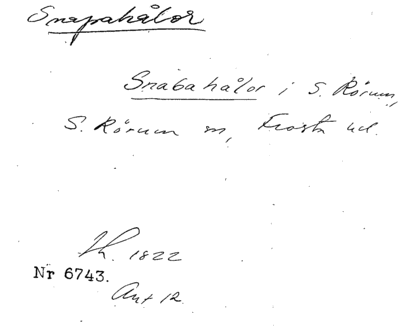 Snapahålor
Snabahålor i S. Rörum,
S. Rörum sn, Frosta hd.
Lh. 1822
Nr 6743.
Ant 12.